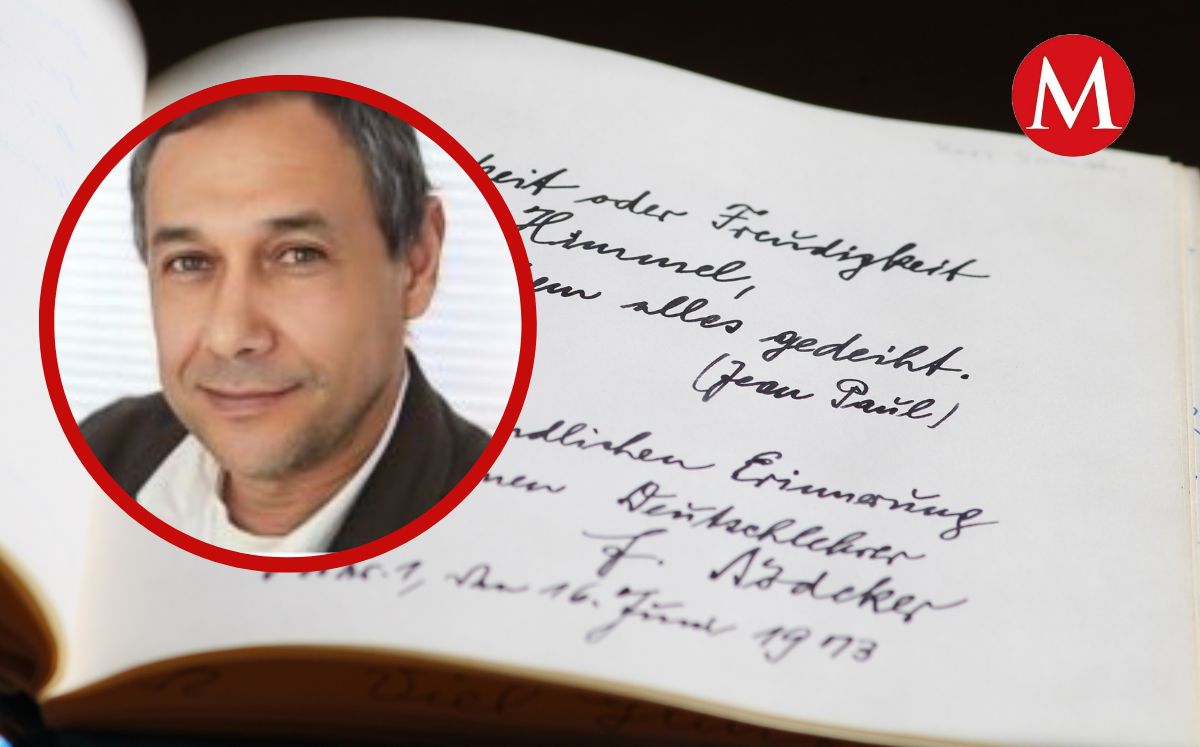 M
keit oder Freudigkeit
Himmel,
em alles gedeiht.
(Jean Paul)
ndlichen Erinnerung
nen Deutschlehrer
F.
1, den 16. Juni 1973